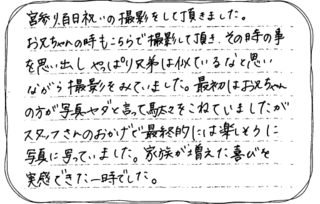 宮参り百日祝いの撮影をして頂きました。
お兄ちゃんの時もこちらで撮影して頂き、その時の事
を思い出し やっぱり兄弟は似ているなと思い
ながら撮影をみていました。最初はお兄ちゃん
の方が写真ヤダと言って駄々をこねていましたが
スタッフさんのおかげで最終的には楽しそうに
写真に写っていました。家族が増えた喜びを
実感できた一時でした。